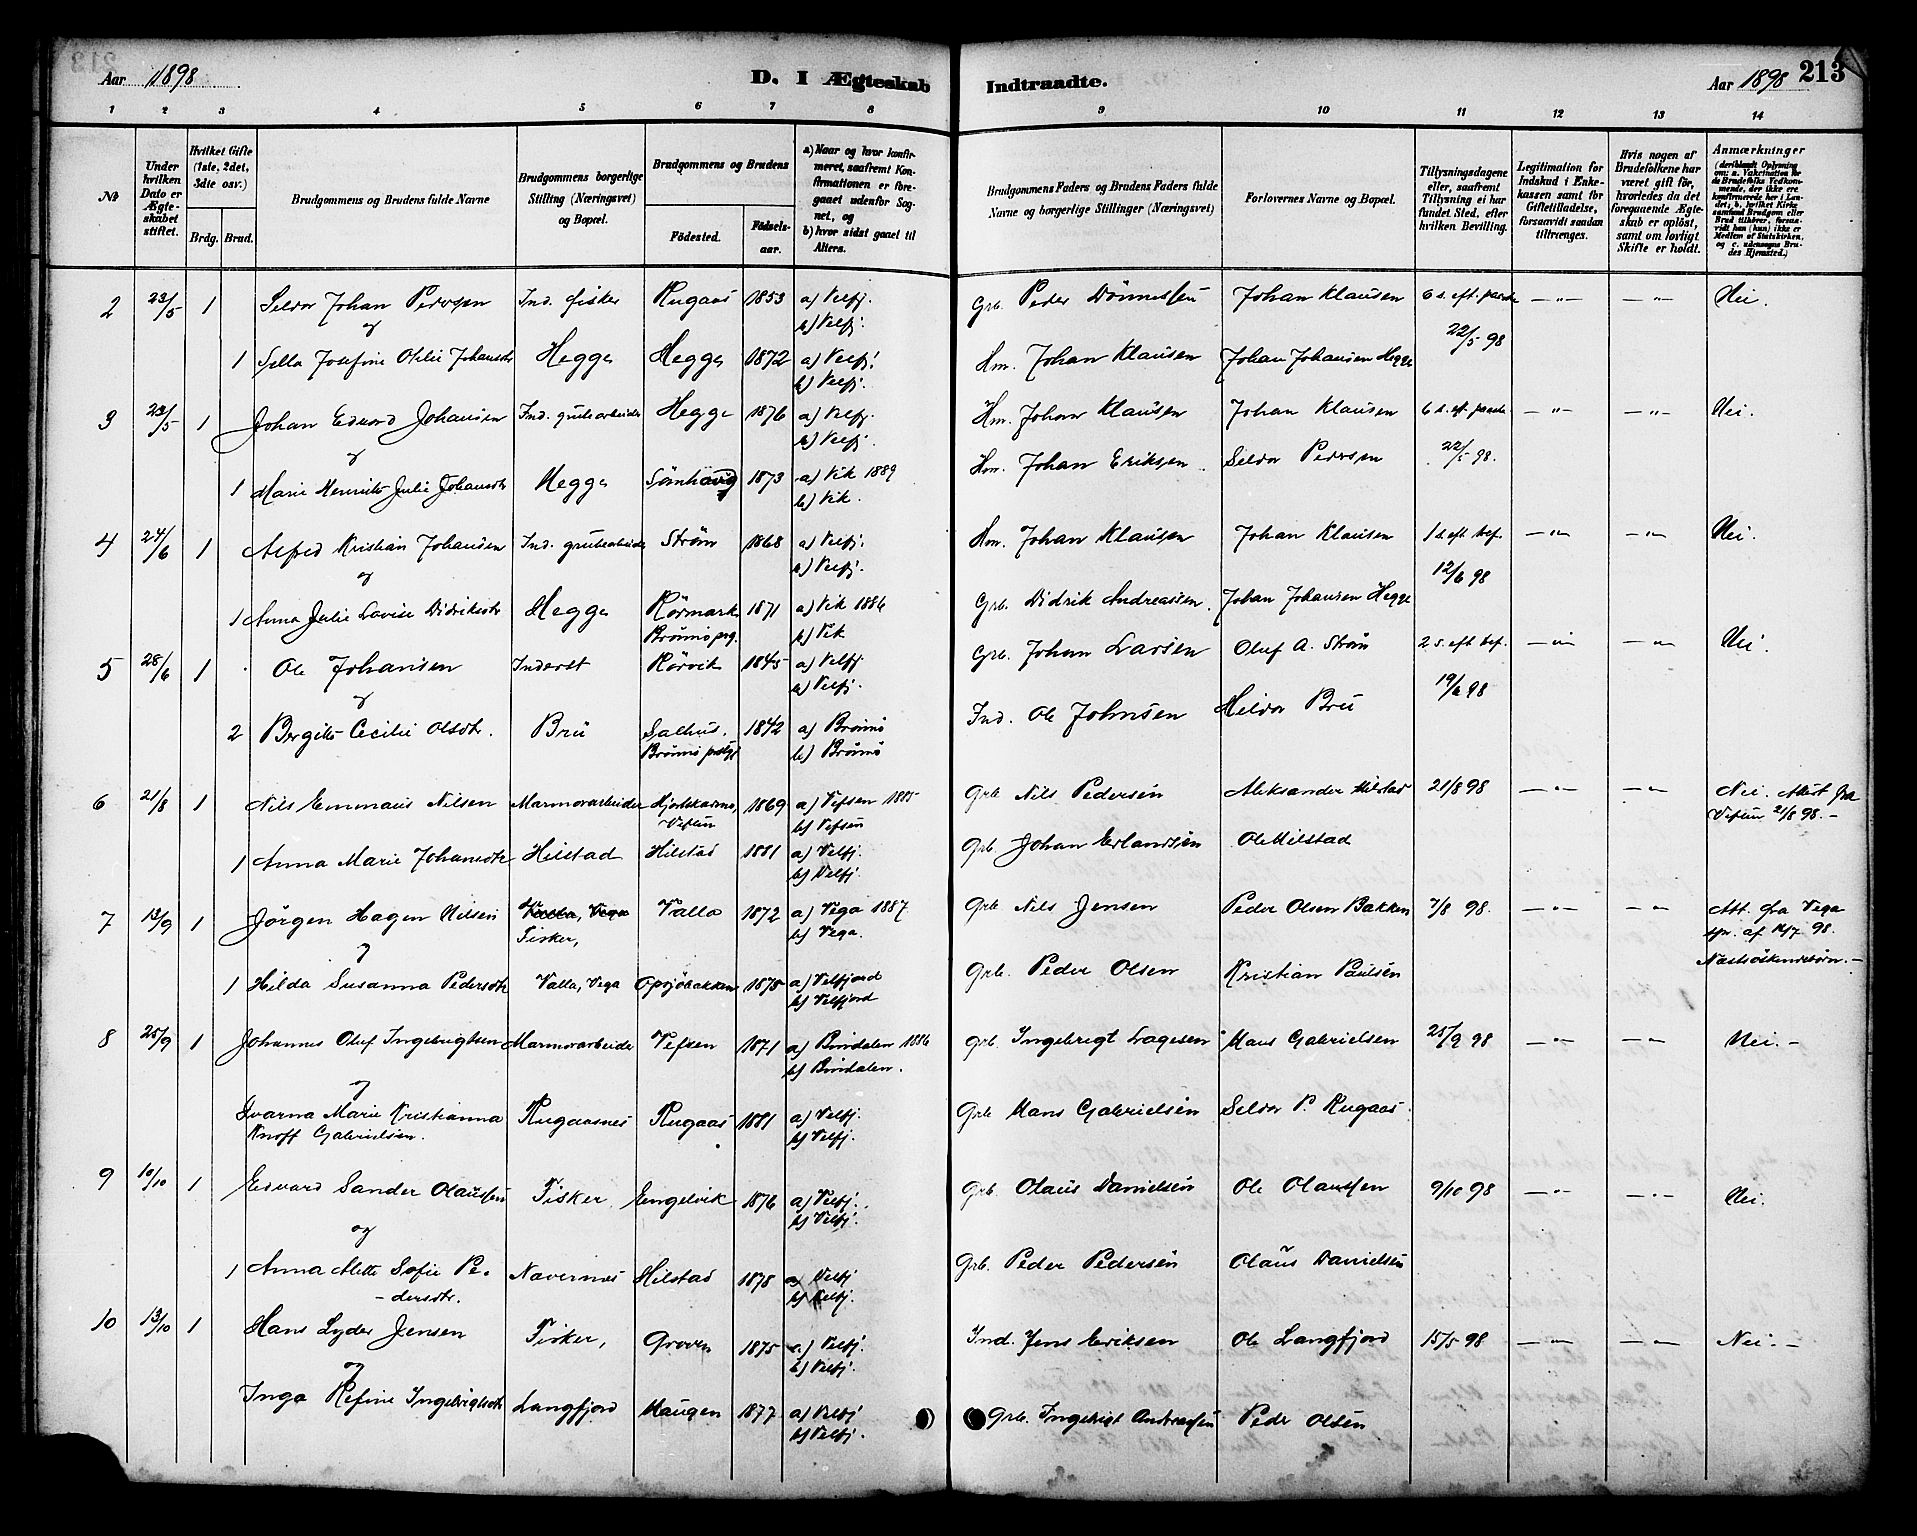 Aar 1898
D. I Ægteskab Indtraadte.
Aar 1898 213
1 2 3 4 5 6 7 8 9 10 11 12 13 14
№
Under hvilken Dato er Ægteskabet stiftet.
Hvilket Gifte (1ste, 2det, 3die osv.)
Brdg. Brud.
Brudgommens og Brudens fulde Navne
Brudgommens borgerlige Stilling (Næringsvei) og Bopæl.
Brudgommens og Brudens
Fødested. Fødselsaar.
a) Naar og hvor konfirmeret, saafremt Konfirmationen er foregaaet udenfor Sognet, og
b) hvor sidst gaaet til Alters.
Brudgommens Faders og Brudens Faders fulde Navne og borgerlige Stillinger (Næringsvei)
Forlovernes Navne og Bopæl.
Tillysningsdagene eller, saafremt Tillysning ei har fundet Sted, efter hvilken Bevilling.
Legitimation for Indskud i Enkekassen samt for Giftetilladelse, forsaavidt saadan tiltrænges.
Hvis nogen af Brudefolkene har været gift før, hvorledes da det foregaaende Ægteskab er opløst, samt om lovligt Skifte er holdt.
Anmærkninger (deriblandt Oplysning om: a. Vakcination for de Brudefolks Vedkommende, der ikke ere konfirmerede her i Landet; b. hvilket Kirkesamfund Brudgom eller Brud tilhører, forsaavidt han (hun) ikke er Medlem af Statskirken, og c. udensogns Brudes Hjemsted.)
2 23/5 1 Seldor Johan Pedersen Ind. fisker Rugaas 1853 a) Velfj. Grb. Peder Dønnessen Johan Klausen 6 s. eft. paaske — " — — " — Nei.
og b) Velfj. 22/5 98
1 Sella Josefine Otilie Johansdtr Hegge Hegge 1872 a) Velfj. Hm. Johan Klausen Johan Johansen Hegge
b) Velfj.
3 23/5 1 Johan Edvard Johansen Ind. grubearbeider Hegge 1876 a) Velfj. Hm. Johan Klausen Johan Klausen 6 s. eft. paaske — " — — " — Nei.
og b) Velfj. 22/5 98.
1 Marie Henriette Julie Johansdtr Hegge 1873 a) Vik 1889 Hm. Johan Eriksen. Seldor Pedersen
b) Vik.
4 24/6 1 Alfred Kristian Johansen Ind. grubearbeider Strøm 1868 a) Velfj. Hm. Johan Klausen Johan Klausen 1 s. eft. tref. — " — — " — Nei.
og b) Velfj. 12/6 98
1 Anna Julie Lovise Didriksdtr Hegge Rørmark 1871 a) Vik 1886 Grb. Didrik Andreassen. Johan Johansen Hegge
Brønnø prg. b) Vik
5 28/6 1 Ole Johansen Inderst Rørvik 1845 a) Velfj. Grb. Johan Larsen Oluf A. Strøm 2 s. eft. tref. — " — — " — Nei.
og b) Velfj. 19/6 98
2 Bergitte Cecilie Olsdtr. Brü Salhus. 1842 a) Brønnø Ind. Ole Johnsen Heldor Brü
Brønnø prstgj b) Brønnø
6 21/8 1 Nils Emmaus Nilsen Marmorarbeider 1869 a) Vefsen 1885 Grb Nils Pedersen Aleksander Hilstad 21/8 98 — " — — " — Nei. Attest fra
Vefsen b) Vefsen Vefsen 21/8 98. —
1 Anna Marie Johansdtr Hilstad Hilstad 1881 a) Velfj. Grb. Johan Erlandsen Ole Hilstad
b) Velfj.
7 13/9 1 Jørgen Hagen Nilsen Valla, Vega Valla 1872 a) Vega 1887 Grb Nils Jensen Peder Olsen Bakken 7/8 98. — " — — " — Att. fra Vega
og Fisker, b) Vega. spr. af 14/7 98.
Næstsøskendebørn. —
1 Hilda Susanna Pedersdtr Valla, Vega Opsjøbakken 1875 a) Velfjord Grb. Peder Olsen Kristian Paulsen
b) Velfjord
8 25/9 1 Johannes Oluf Ingebrigtsen Marmorarbeide Vefsen 1871 a) Bindalen 1886 Grb. Ingebrigt Lagesen Hans Gabrielsen 25/9 98 — " — — " — Nei. —
og b) Bindalen.
1 Ivarna Marie Kristianna Rugaasnes Rugaas 1881 a) Velfj. Grb Hans Gabrielsen Seldor P. Rugaas.
Knoff Gabrielsen. b) Velfj.
9 10/10 1 Edvard Sander Olaussen Fisker. Engelvik 1876 a) Velfj. Grb. Olaus Danielsen Ole Olaussen 9/10 98 — " — — " — Nei.
og b) Velfj.
1 Anna Alette Sofie Pe- Nævernes Hilstad 1878 a) Velfj Grb. Peder Pedersen Olaus Danielsen
- dersdtr. b) Velfj.
10 13/10 1 Hans Lyder Jensen Fisker, Groven 1875 a) Velfj. Ind. Jens Eriksen Ole Langfjord 15/5 98 — " — — " — Nei. —
og b) Velfj.
Inga Refine Ingebrigtsdtr Langfjord Haugen 1877 a) Velfj Grb. Ingebrigt Andreassen Peder Olsen
b) Velfj.